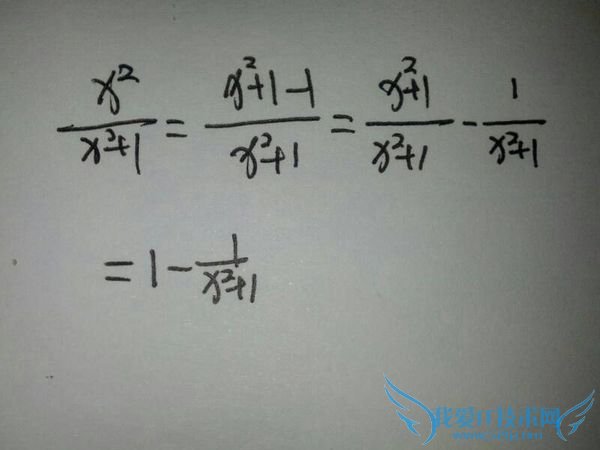 x²/(x²+1) = (x²+1-1)/(x²+1) = (x²+1)/(x²+1) - 1/(x²+1)
= 1 - 1/(x²+1)
我爱IT技术网